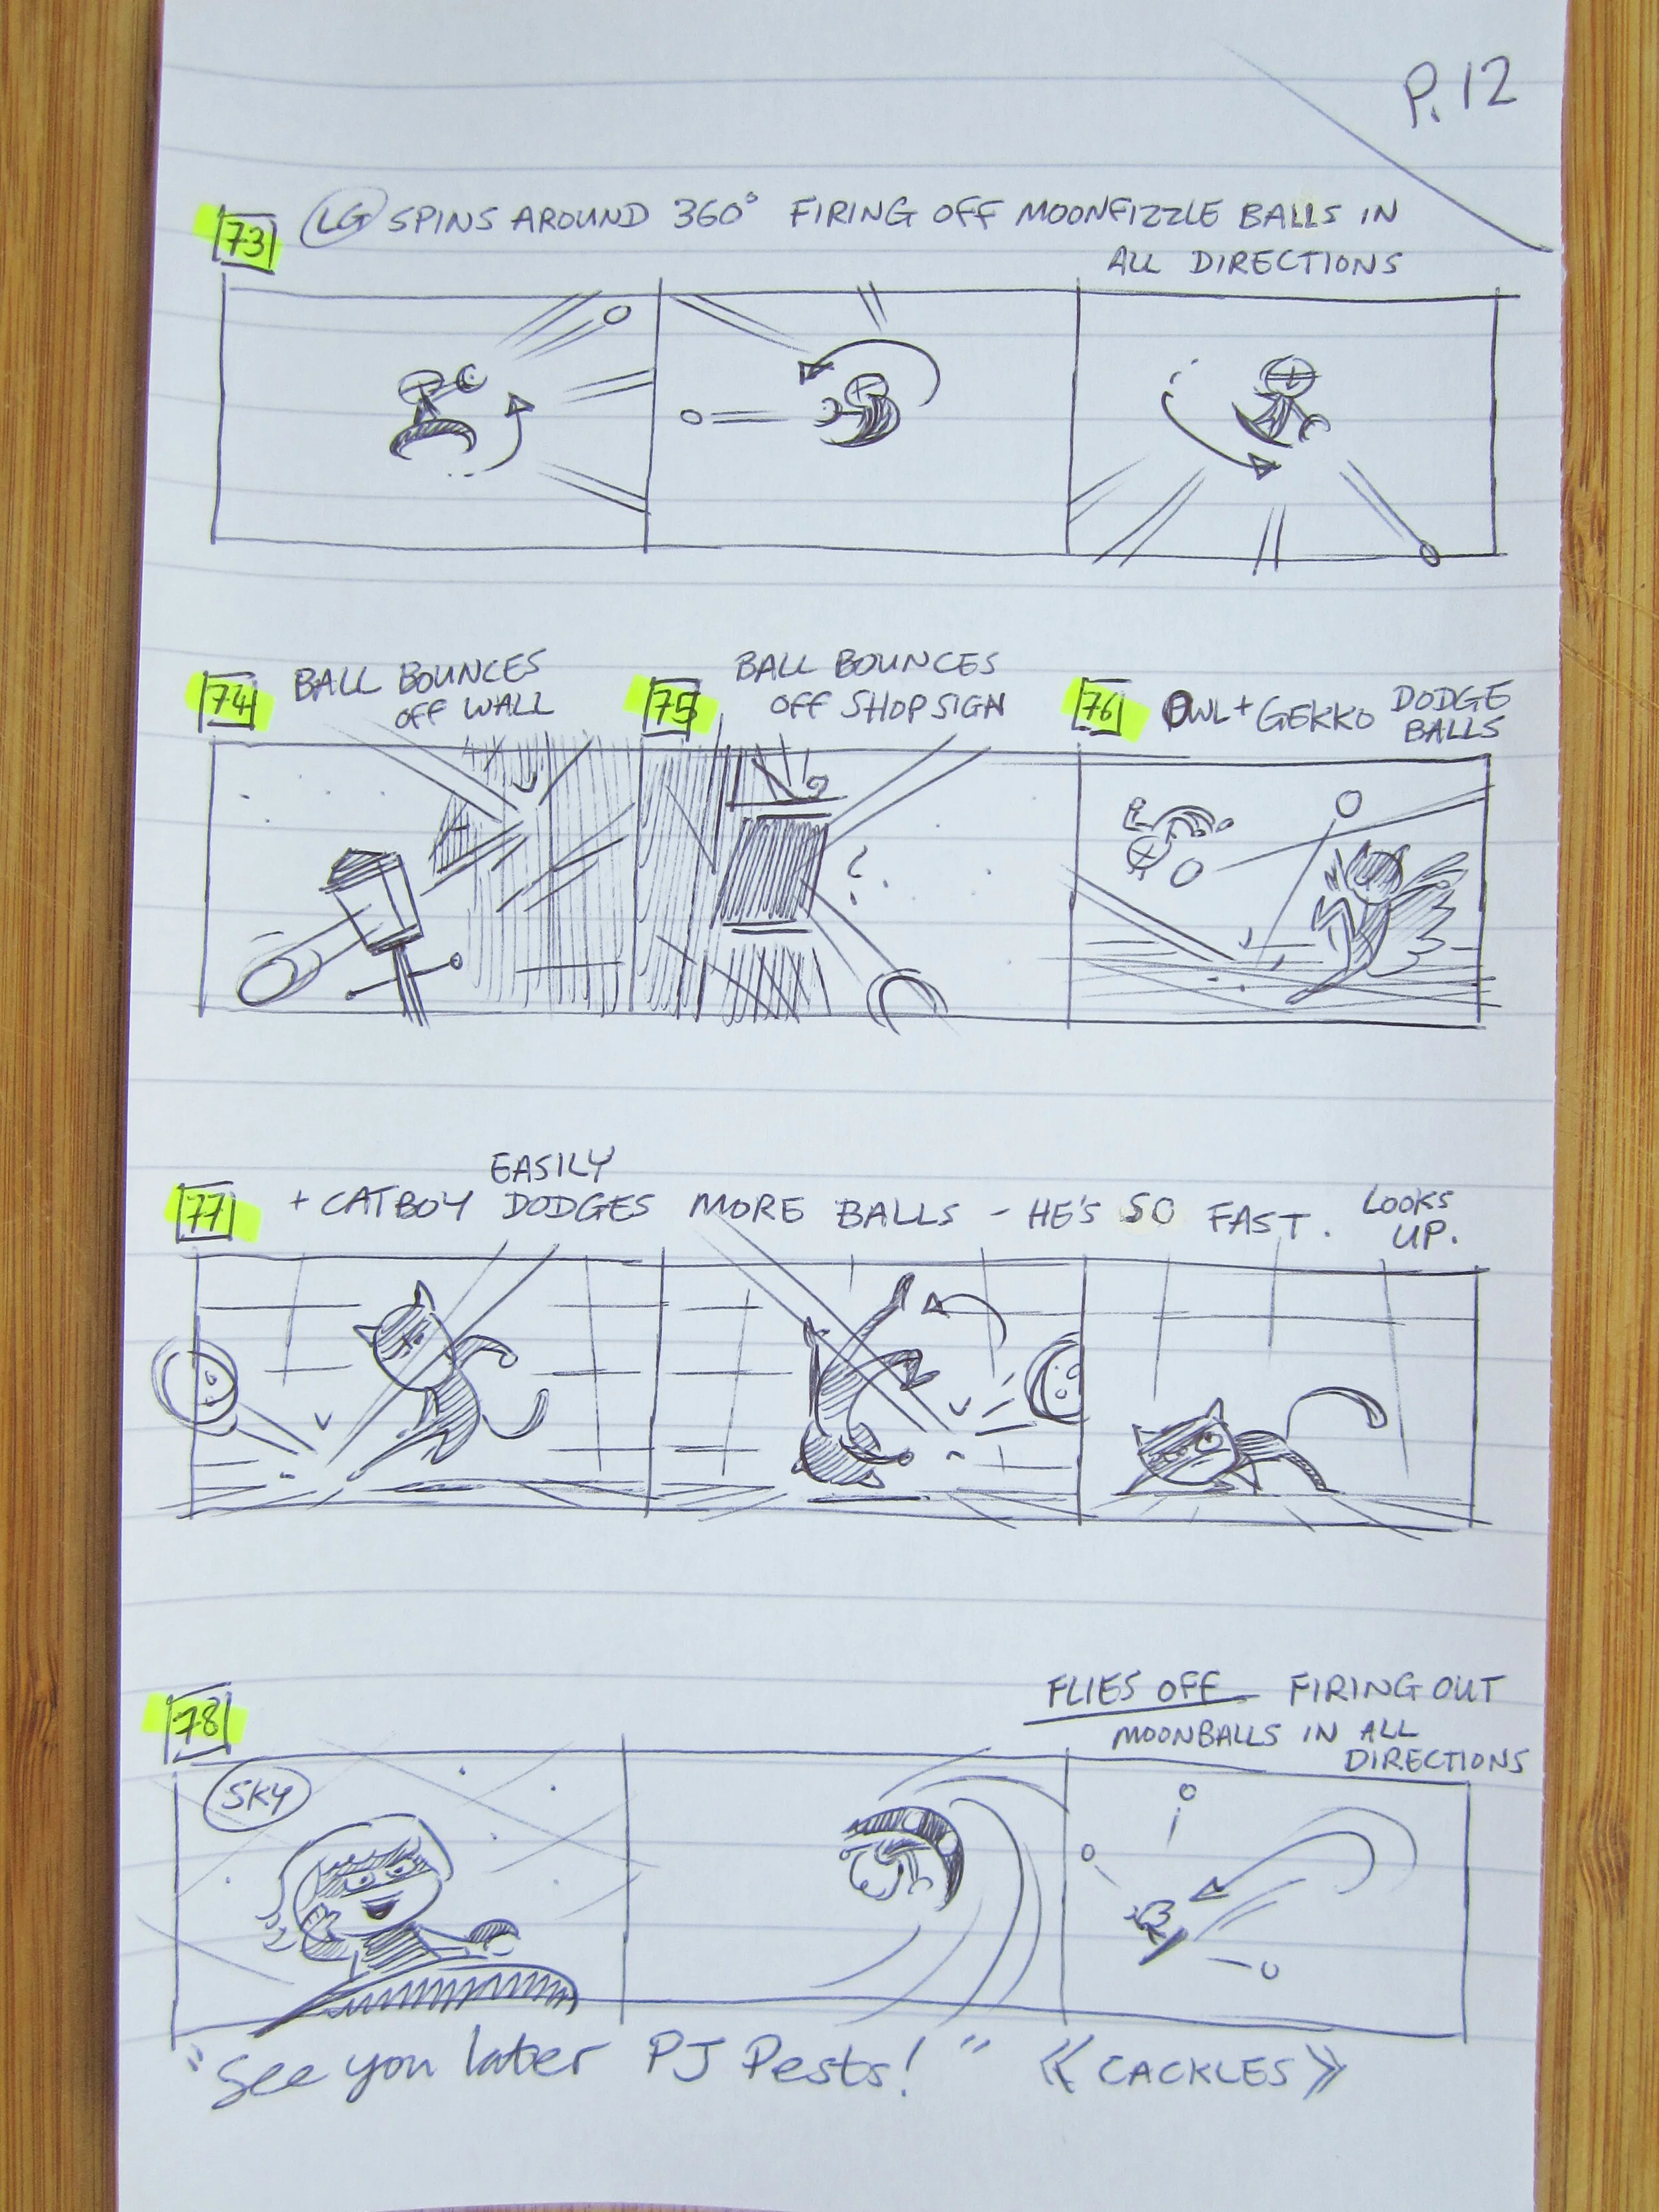 P. 12
73
LG SPINS AROUND 360° FIRING OFF MOONFIZZLE BALLS IN
ALL DIRECTIONS
74
BALL BOUNCES
OFF WALL
75
BALL BOUNCES
OFF SHOP SIGN
76
OWL + GEKKO DODGE
BALLS
77
EASILY
+ CATBOY DODGES MORE BALLS - HE'S SO FAST. LOOKS
UP.
78
FLIES OFF FIRING OUT
MOONBALLS IN ALL
DIRECTIONS
SKY
"See you later PJ Pests!" << CACKLES >>